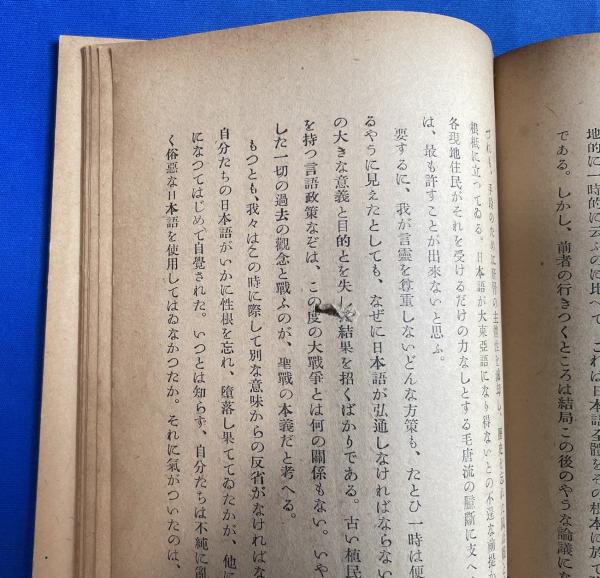 地的に一時的に云ふのに比べて、これは日本語全體をその根本に於て
である。しかし、前者の行きつくところは結局この後のやうな論議にな
づれも、手段のために
根柢に立つてゐる。日本語が大東亞語になり得ないとの不逞な前提か
各現地住民がそれを受けるだけの力なしとする毛唐流の臆斷に支へ
は、最も許すことが出來ないと思ふ。
要するに、我が言靈を尊重しないどんな方策も、たとひ一時は便
るやうに見えたとしても、なぜに日本語が弘通しなければならない
の大きな意義と目的とを失し結果を招くばかりである。古い植民
を持つ言語政策なぞは、この度の大戰爭とは何の關係もない。いや
した一切の過去の觀念と戰ふのが、聖戰の本義だと考へる。
もつとも、我々はこの時に際して別な意味からの反省がなければな
自分たちの日本語がいかに性根を忘れ、墮落し果ててゐたかが、他に
になつてはじめて自覺された。いつとは知らず、自分たちは不純に
く俗惡な日本語を使用してはゐなかつたか。それに氣がついたのは、